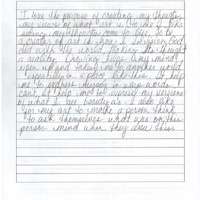 I love the process of creating my thoughts,
my view of what art is to me is like
seeing my thoughts come to life. To be
a creator of art is how I interpret God
did with the world. Making the thought
a reality. Drawing helps my mind
open up and takes me to another world
especially in a place like this. It help
me to address anxiety in ways words
can't, it help me to express my version
of what I see beauty as. I also like
for my art to make a person think
to ask themselves what was on this
person mind when they drew this